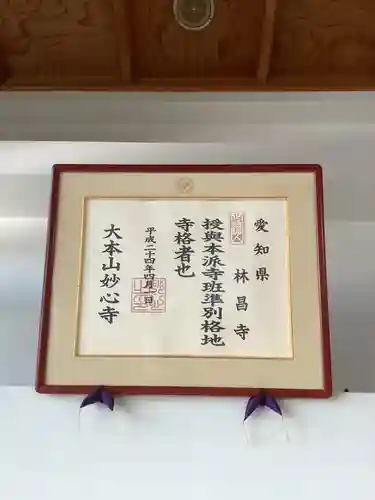 愛知県
林昌寺
授與本派寺班準別格地
寺格者也
平成二十四年四月一日
大本山妙心寺